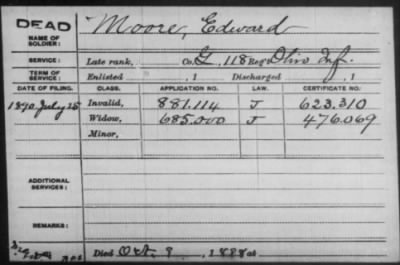 DEAD
NAME OF SOLDIER:
Moore, Edward
SERVICE:
Late rank, Co. G, 118 Reg't Ohio Inf.
TERM OF SERVICE:
Enlisted , 1 Discharged , 1
DATE OF FILING. CLASS. APPLICATION NO. LAW. CERTIFICATE NO.
1890 July 25 Invalid, 881.114 J 623.310
Widow, 685.000 J 476.069
Minor,
ADDITIONAL SERVICES:
REMARKS:
Died Oct. 9, 1898 at